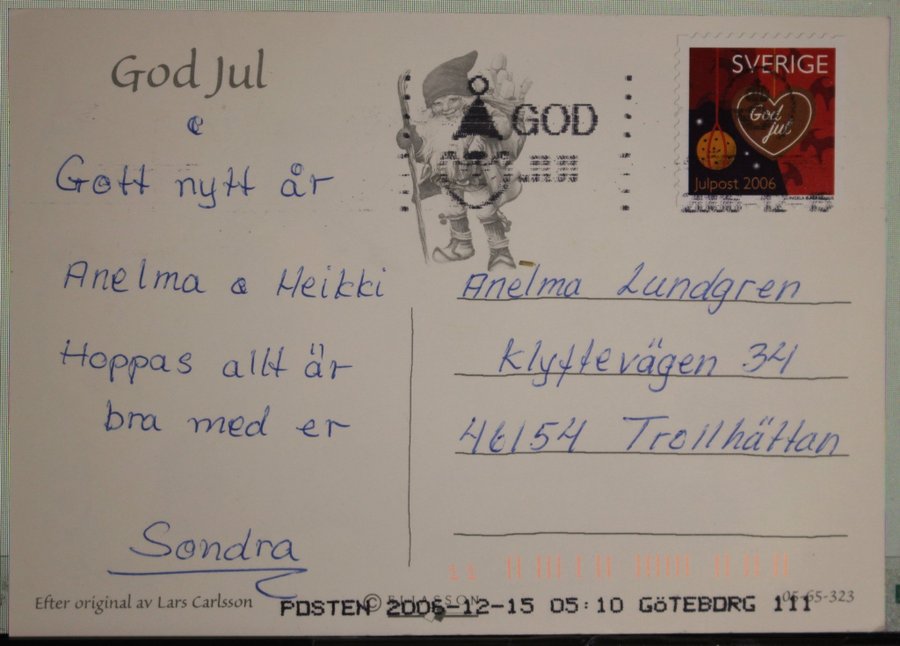 God Jul
&
Gott nytt år
Anelma & Heikki
Hoppas allt är
bra med er
Sondra
Efter original av Lars Carlsson
GOD
SVERIGE
God
jul
Julpost 2006
2006-12-15
Anelma Lundgren
Klyftevägen 34
46154 Trollhättan
© ELIASSON
05-65-323
POSTEN 2006-12-15 05:10 GÖTEBORG 111